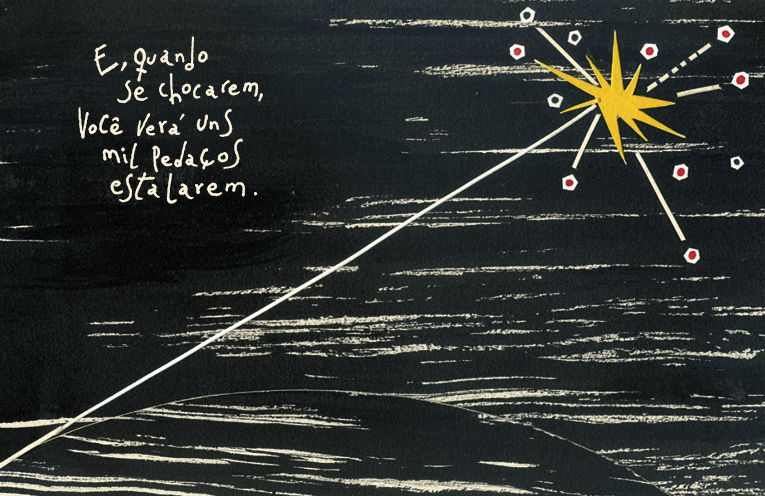 E, quando
se chocarem,
Você verá uns
mil pedaços
estalarem.